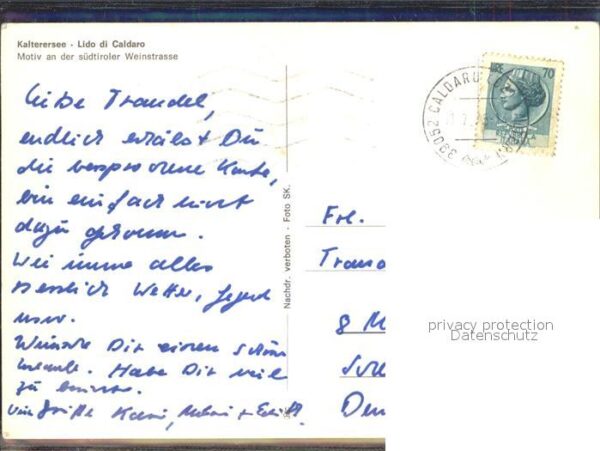 Kalterersee - Lido di Caldaro
Motiv an der südtiroler Weinstrasse
Liebe Traudel,
endlich erhälst Du
die versprochene Karte,
bin einfach nicht
dazu gekommen.
Wie immer alles
herrlich Wetter, Jegend
usw.
Wünsche Dir einen schönen
Urlaub. Habe Dir viel
zu
viele Grüße Karin, +
Nachdr. verboten - Foto SK.
LIRE 70
39052 CALDARO
Frl.
8 M
privacy protection
Datenschutz